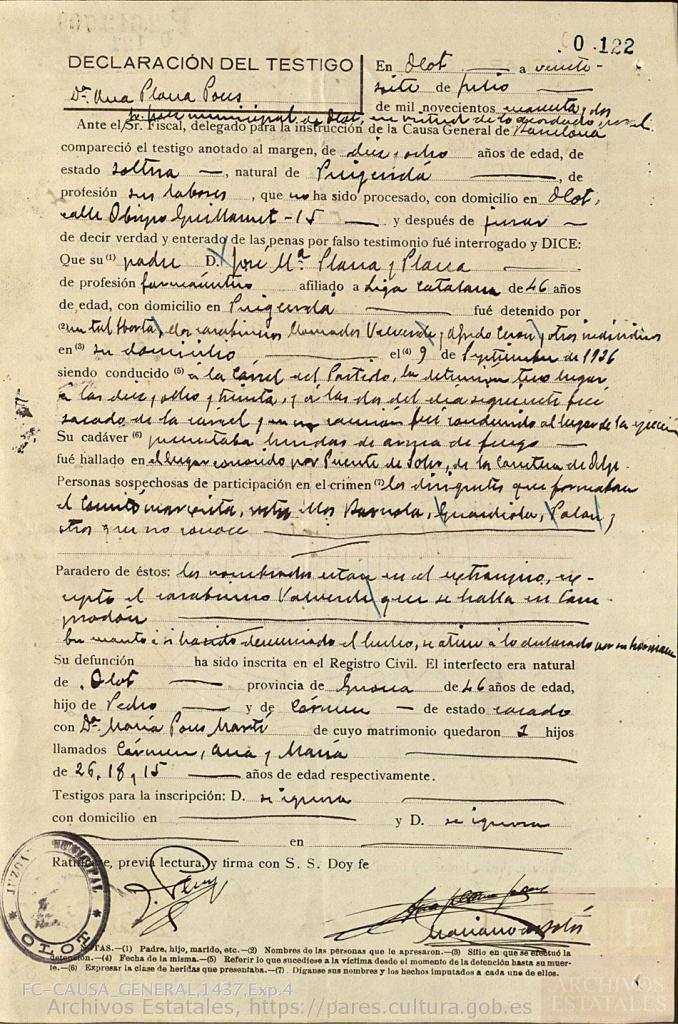 0.122
DECLARACIÓN DEL TESTIGO
Dª Ana Plana Pous
En Olot a veinte-
siete de julio
de mil novecientos cuarenta y dos
Sr. Juez municipal de Olot, en virtud de lo acordado
Ante el Sr. Fiscal, delegado para la instrucción de la Causa General de Barcelona
compareció el testigo anotado al margen, de diez y ocho años de edad, de
estado soltera, natural de Puigcerdá, de
profesión sus labores, que no ha sido procesado, con domicilio en Olot,
calle Obispo Guillamet - 15 y después de jurar
de decir verdad y enterado de las penas por falso testimonio fué interrogado y DICE:
Que su (1) padre D. José Mª Plana y Plana
de profesión farmacéutico afiliado a Liga Catalana de 46 años
de edad, con domicilio en Puigcerdá fué detenido por
(2) un tal dos carabineros llamados Valverde y Alfredo y otros individuos
en (3) su domicilio el (4) 9 de Septiembre de 1936
siendo conducido (5) a la Carcel del Partido, la detención tuvo lugar
a las diez y ocho y treinta, y a las dos del dia siguiente fué
sacado de la carcel y en un camión fué conducido al lugar de la ejecución
Su cadáver (6) presentaba heridas de arma de fuego
fué hallado en el lugar conocido por Puente de Soler, de la Carretera de
Personas sospechosas de participación en el crimen (7) los dirigentes que formaban
el Comité marxista, entre ellos Guardiola, y
otros que no conoce
Paradero de éstos: los nombrados estan en el extranjero, ex-
cepto el carabinero Valverde que se halla en Cam-
prodón
En cuanto a si ha sido denunciado el hecho, se atiene a lo declarado por su hermana
Su defunción ha sido inscrita en el Registro Civil. El interfecto era natural
de Olot provincia de Gerona de 46 años de edad,
hijo de Pedro y de Cármen de estado casado
con Dª María Pous Martí de cuyo matrimonio quedaron 3 hijos
llamados Cármen, Ana y María
de 26, 18 y 15 años de edad respectivamente.
Testigos para la inscripción: D. se ignora
con domicilio en y D. se ignora
en
Ratifícase, previa lectura, y firma con S. S. Doy fe
Ana Plana Pous
JUZGADO MUNICIPAL
OLOT
NOTAS.—(1) Padre, hijo, marido, etc.—(2) Nombres de las personas que le apresaron.—(3) Sitio en que se efectuó la
detención.—(4) Fecha de la misma.—(5) Referir lo que sucediese a la víctima desde el momento de la detención hasta su muer-
te.—(6) Expresar la clase de heridas que presentaba.—(7) Díganse sus nombres y los hechos imputados a cada uno de ellos.
FC-CAUSA_GENERAL,1437,Exp.4
Archivos Estatales, https://pares.cultura.gob.es
ARCHIVOS
ESTATALES